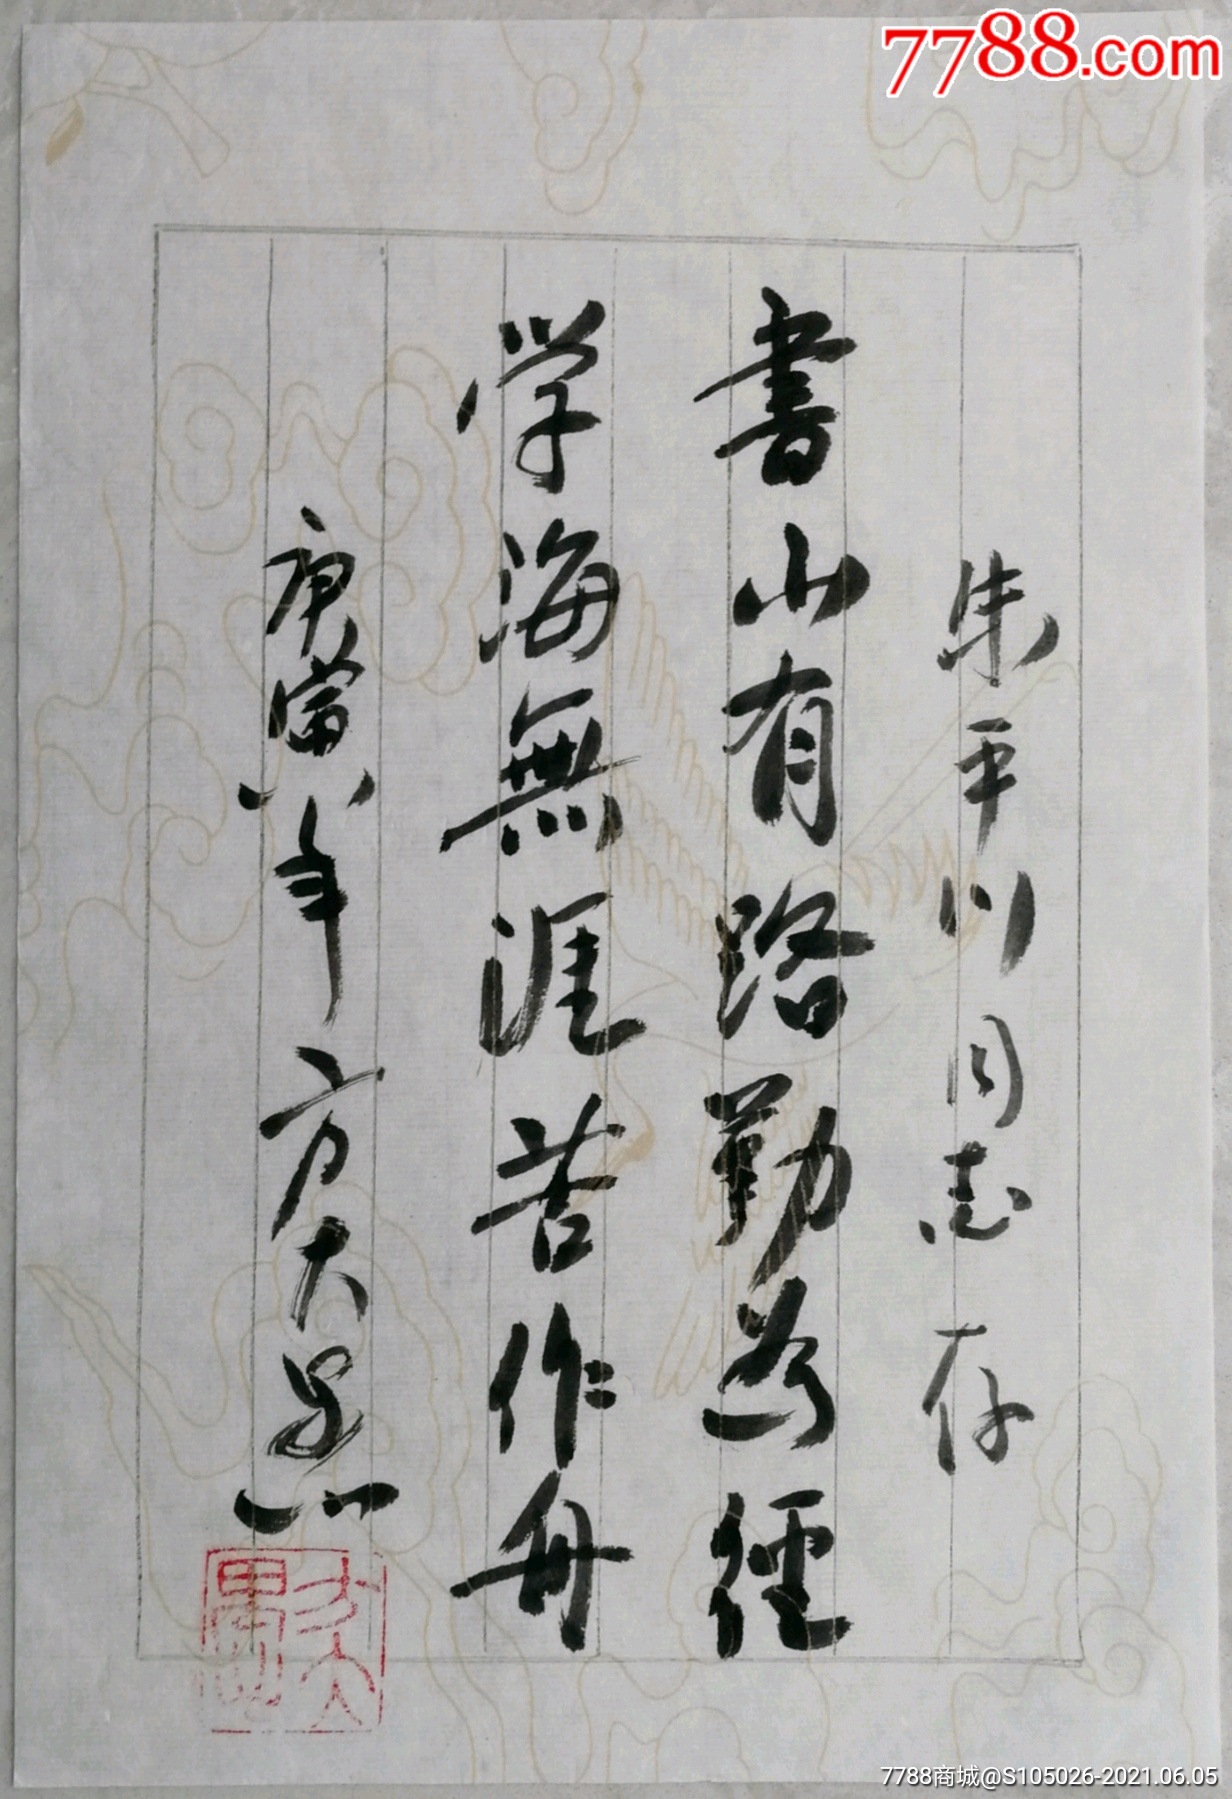 7788.com
朱平川同志存
書山有路勤為徑
学海無涯苦作舟
庚寅年方大愚
方大愚
7788商城@S105026-2021.06.05